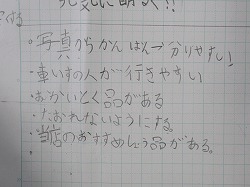 元気に明るく!!
する
・写真つきかんばん→分りやすい!
・車いすの人が行きやすい
・おかいとく品がある
・たおれないようにする
・当店のおすすめしょう品がある。